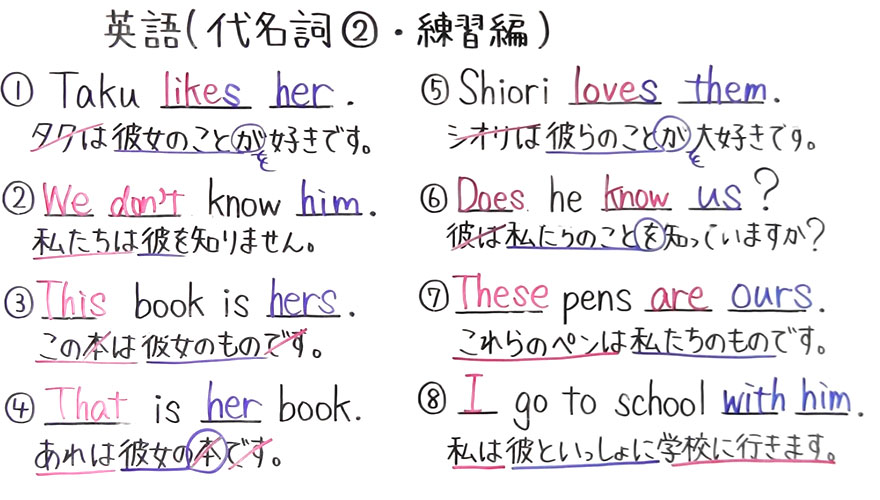 英語(代名詞②・練習編)
① Taku likes her.
タクは彼女のことが好きです。
を
② We don't know him.
私たちは彼を知りません。
③ This book is hers.
この本は彼女のものです。
④ That is her book.
あれは彼女の本です。
⑤ Shiori loves them.
シオリは彼らのことが大好きです。
を
⑥ Does he know us?
彼は私たちのことを知っていますか?
⑦ These pens are ours.
これらのペンは私たちのものです。
⑧ I go to school with him.
私は彼といっしょに学校に行きます。